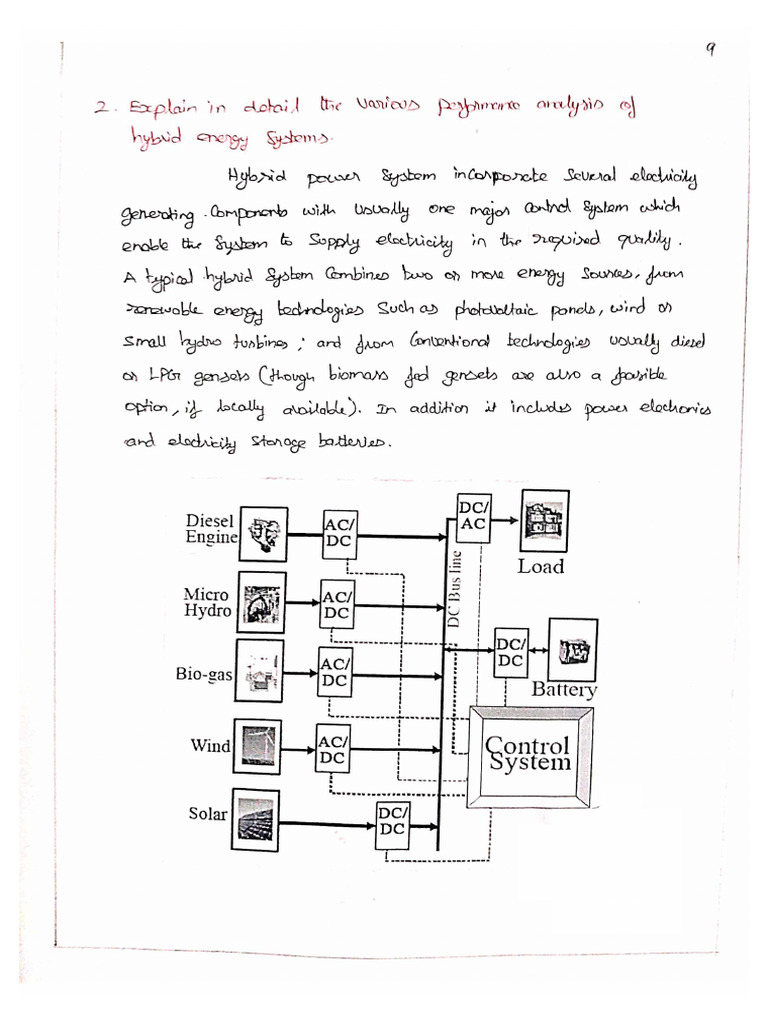 9
2. Explain in detail the various performance analysis of
hybrid energy systems.
Hybrid power system incorporate several electricity
generating components with usually one major control system which
enable the system to supply electricity in the required quality.
A typical hybrid system combines two or more energy sources, from
renewable energy technologies such as photovoltaic panels, wind or
small hydro turbines; and from conventional technologies usually diesel
or LPG gensets (though biomass fed gensets are also a possible
option, if locally available). In addition it includes power electronics
and electricity storage batteries.
Diesel
Engine
AC/
DC
DC/
AC
Load
Micro
Hydro
AC/
DC
DC Bus line
Bio-gas
AC/
DC
DC/
DC
Battery
Wind
AC/
DC
Control
System
Solar
DC/
DC